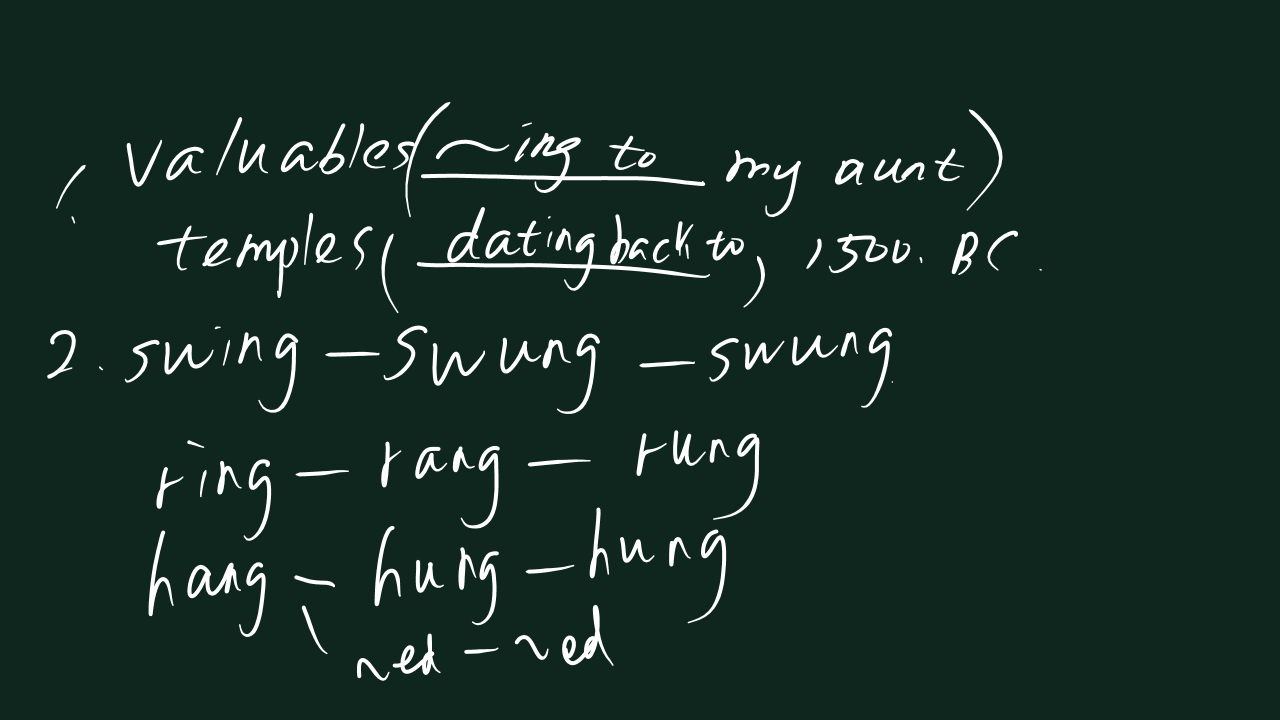 1. valuables (~ing to my aunt)
temples (dating back to) 1500. BC.
2. swing - swung - swung.
ring - rang - rung
hang - hung - hung
\ ~ed - ~ed